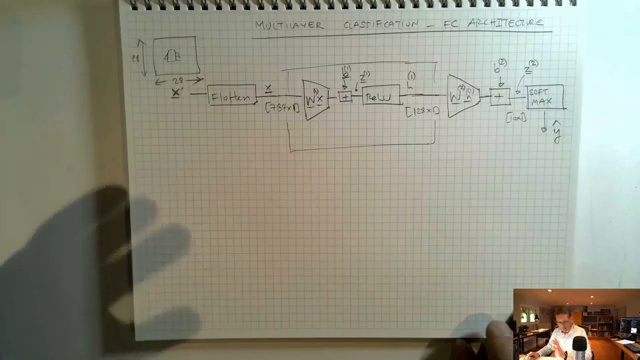 MULTILAYER CLASSIFICATION - FC ARCHITECTURE
28
28
x'
Flatten
x
[784x1]
W(1) x
b(1)
+
z(1)
ReLU
h(1)
[128x1]
W(2) h(1)
b(2)
+
z(2)
[10x1]
SOFT
MAX
ŷ